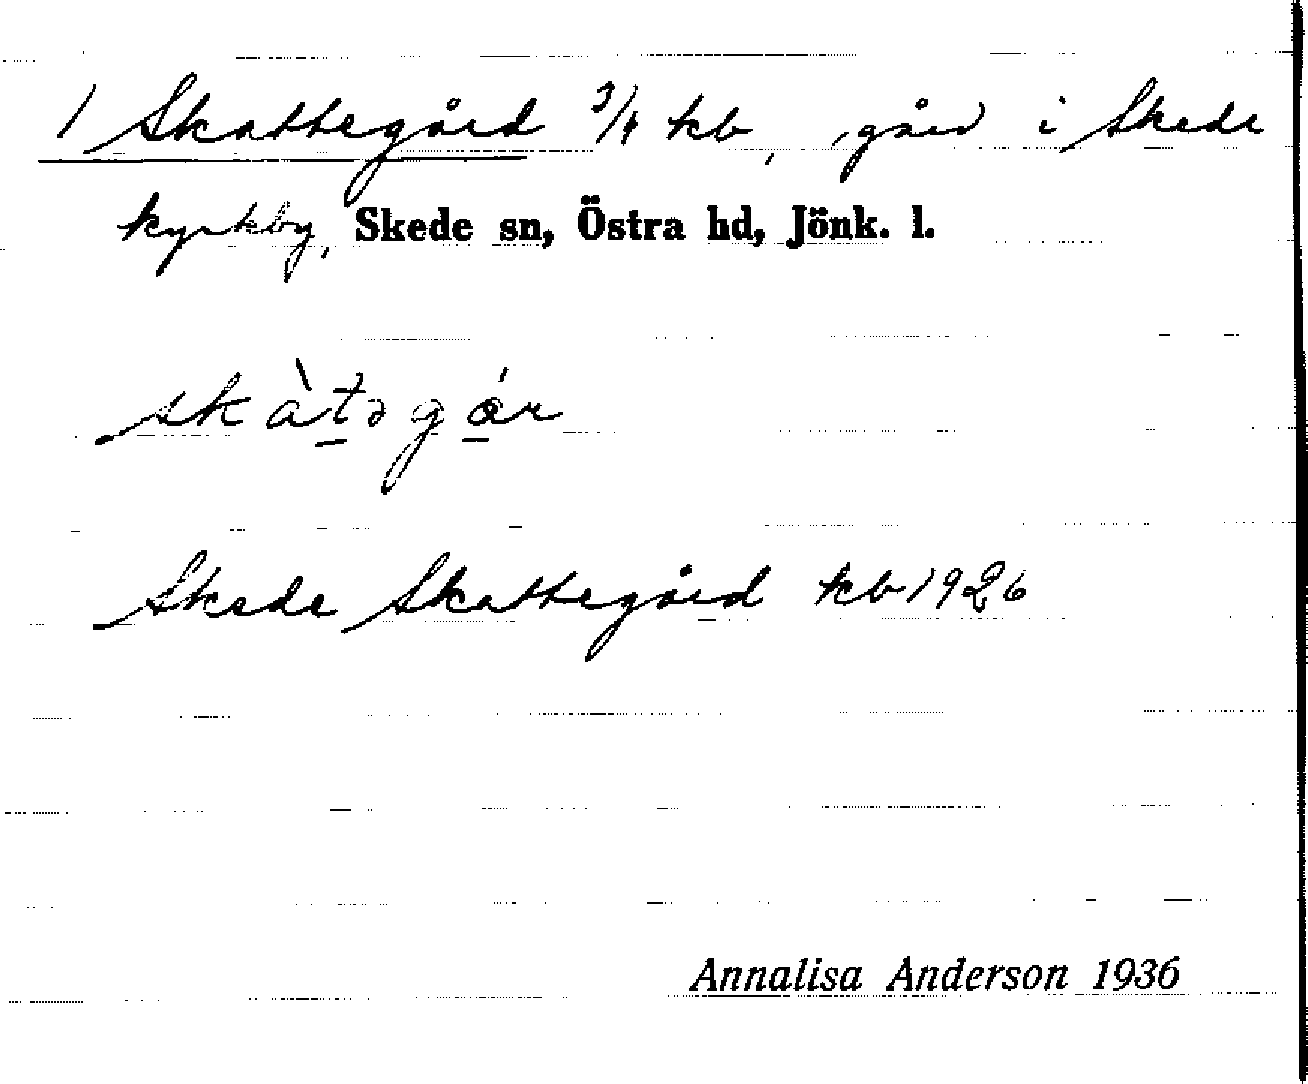 1 Skattegård 3/4 kb, gård i Skede
kyrkby, Skede sn, Östra hd, Jönk. l.
skàtəgán
Skede Skattegård kb 1926
Annalisa Anderson 1936